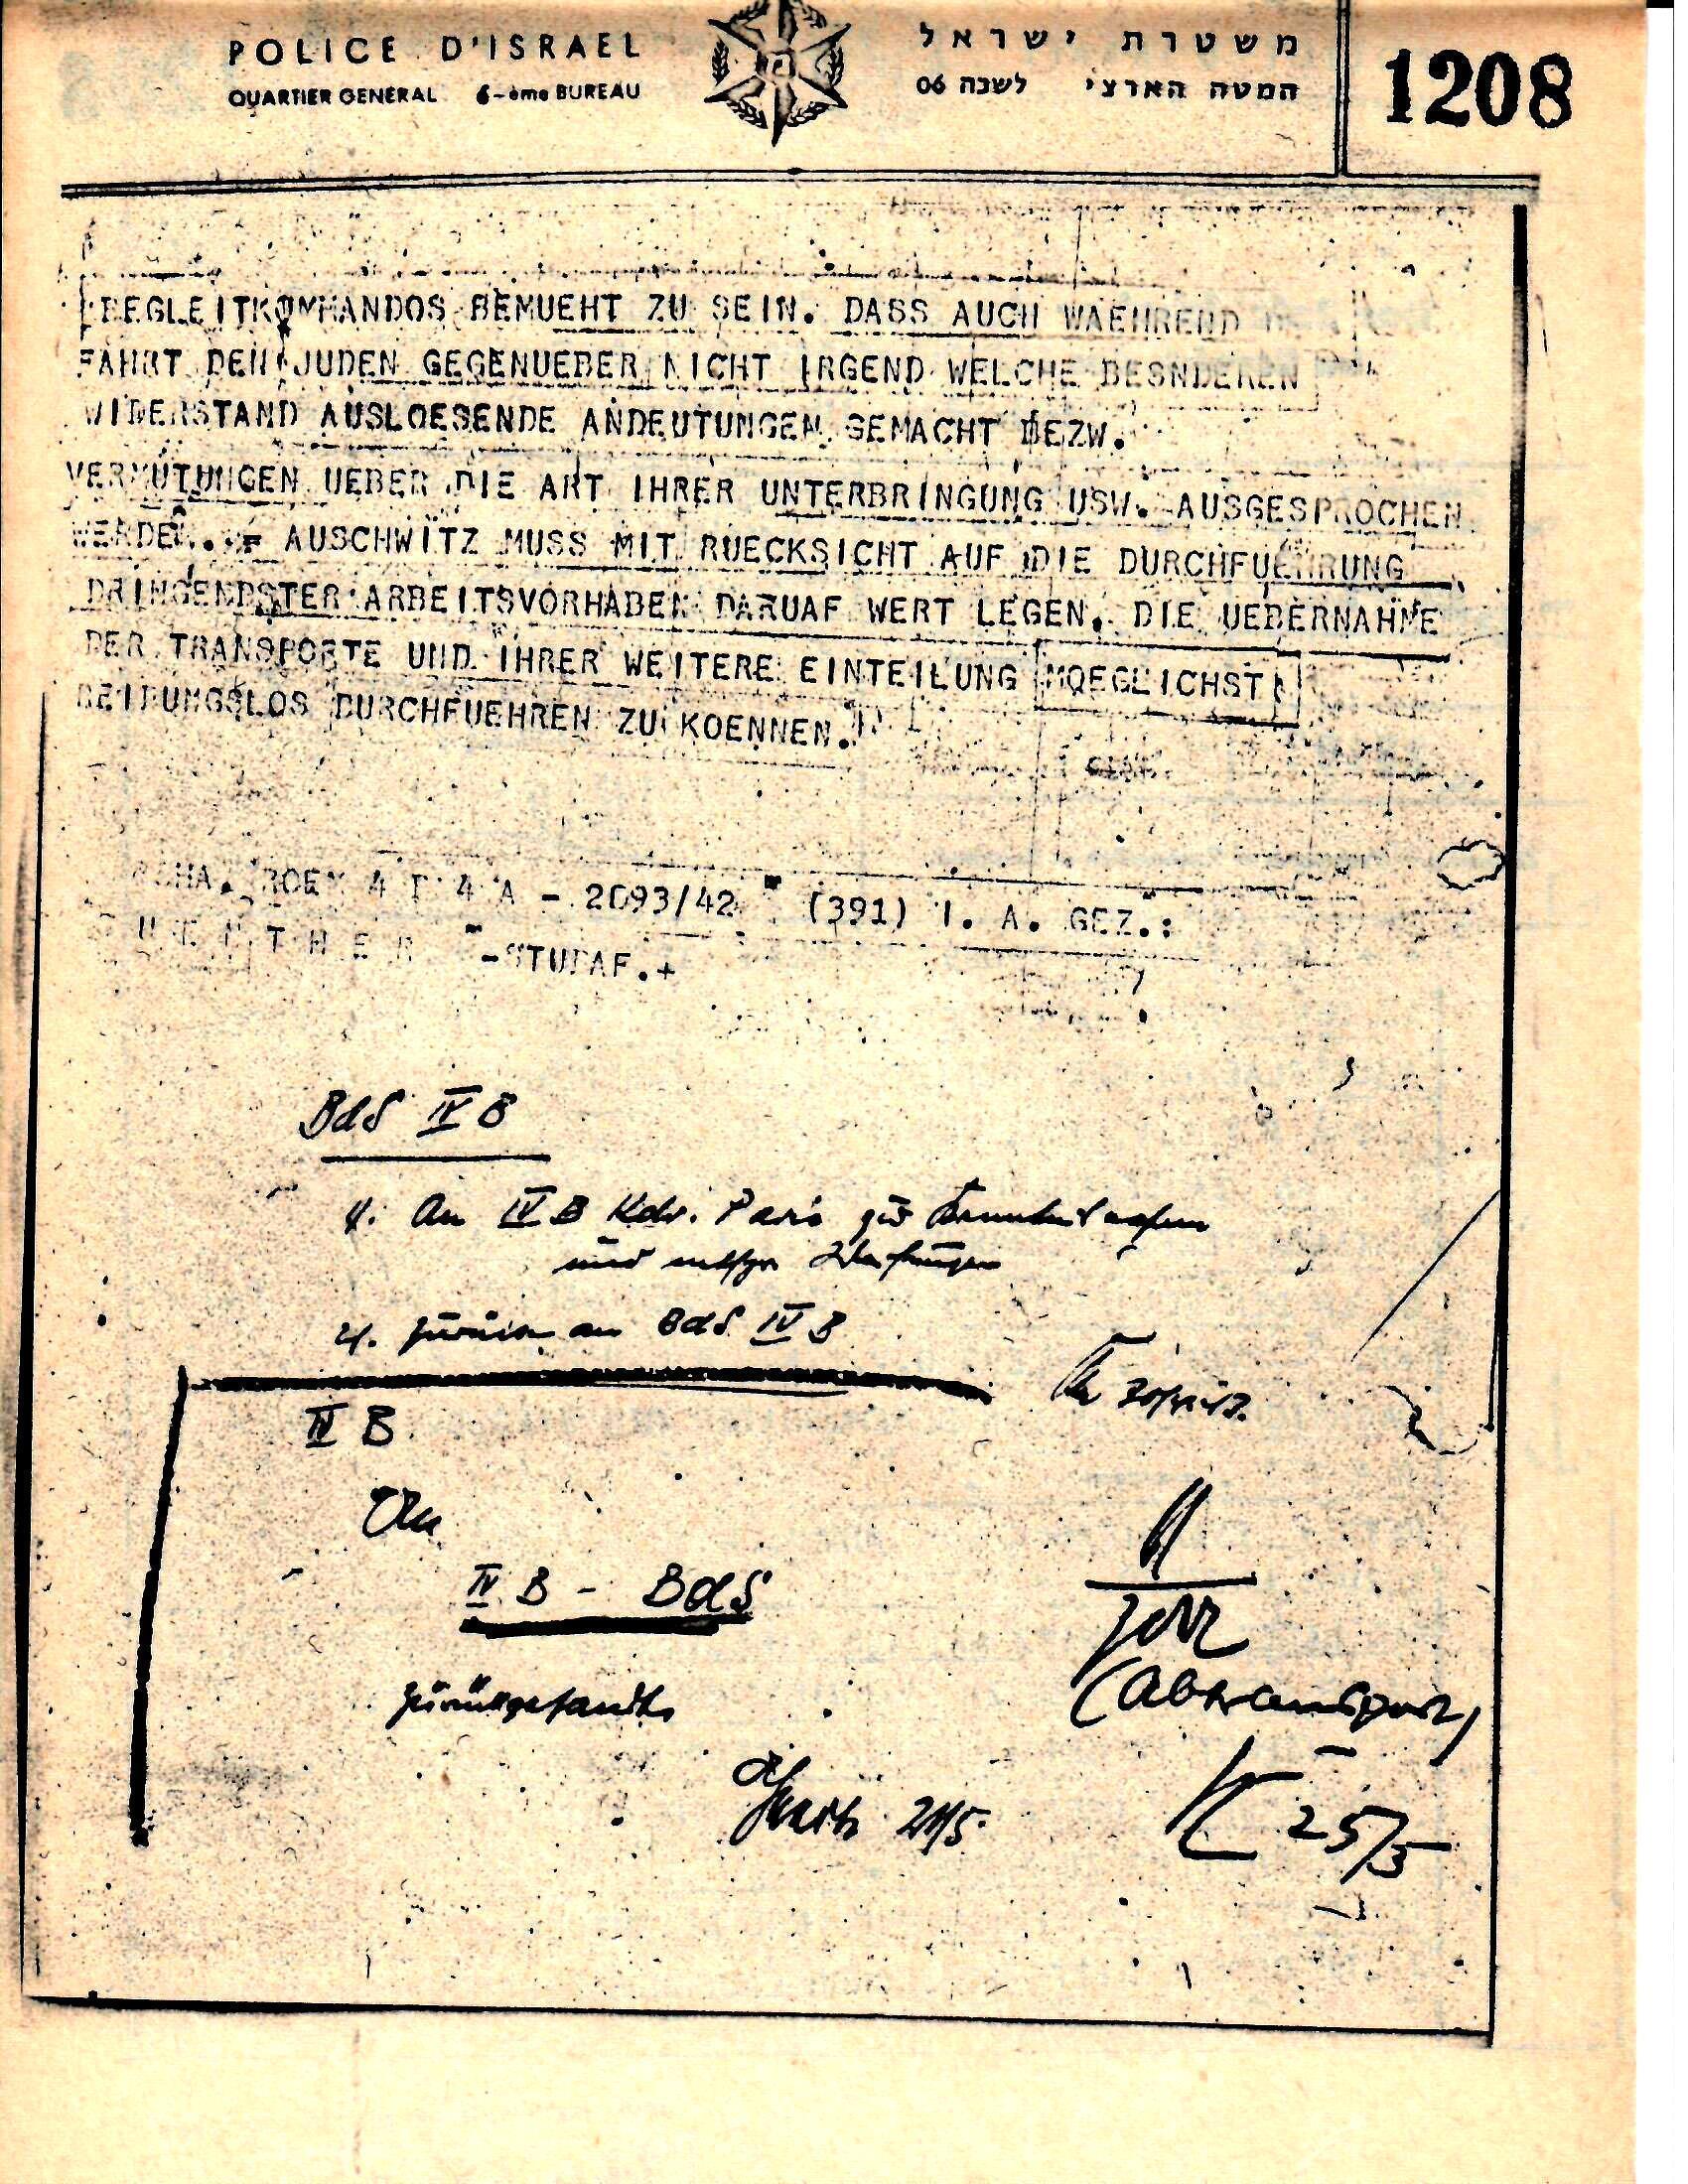 POLICE D'ISRAEL
QUARTIER GENERAL 6-ème BUREAU
משטרת ישראל
המטה הארצי לשכה 06
1208
BEGLEITKOMMANDOS BEMUEHT ZU SEIN. DASS AUCH WAEHREND
FAHRT DEN JUDEN GEGENUEBER NICHT IRGEND WELCHE BESNDEREN
WIDERSTAND AUSLOESENDE ANDEUTUNGEN GEMACHT BEZW.
VERMUTUNGEN UEBER DIE ART IHRER UNTERBRINGUNG USW. AUSGESPROCHEN
WERDEN. = AUSCHWITZ MUSS MIT RUECKSICHT AUF DIE DURCHFUEHRUNG
DRINGENDSTER ARBEITSVORHABEN DARUAF WERT LEGEN. DIE UEBERNAHME
DER TRANSPORTE UND IHRER WEITERE EINTEILUNG MOEGLICHST
REIBUNGSLOS DURCHFUEHREN ZU KOENNEN.
RSHA. ROEM 4 B 4 A - 2093/42 (391) I. A. GEZ.:
-STUBAF.+
BdS IV B
1. An IV B Kdr. Paris zur Kenntnisnahme
und
2. zurück an BdS IV B
IV B.
An
IV B - BdS
zurückgesandt
(Abtransport)
25/5